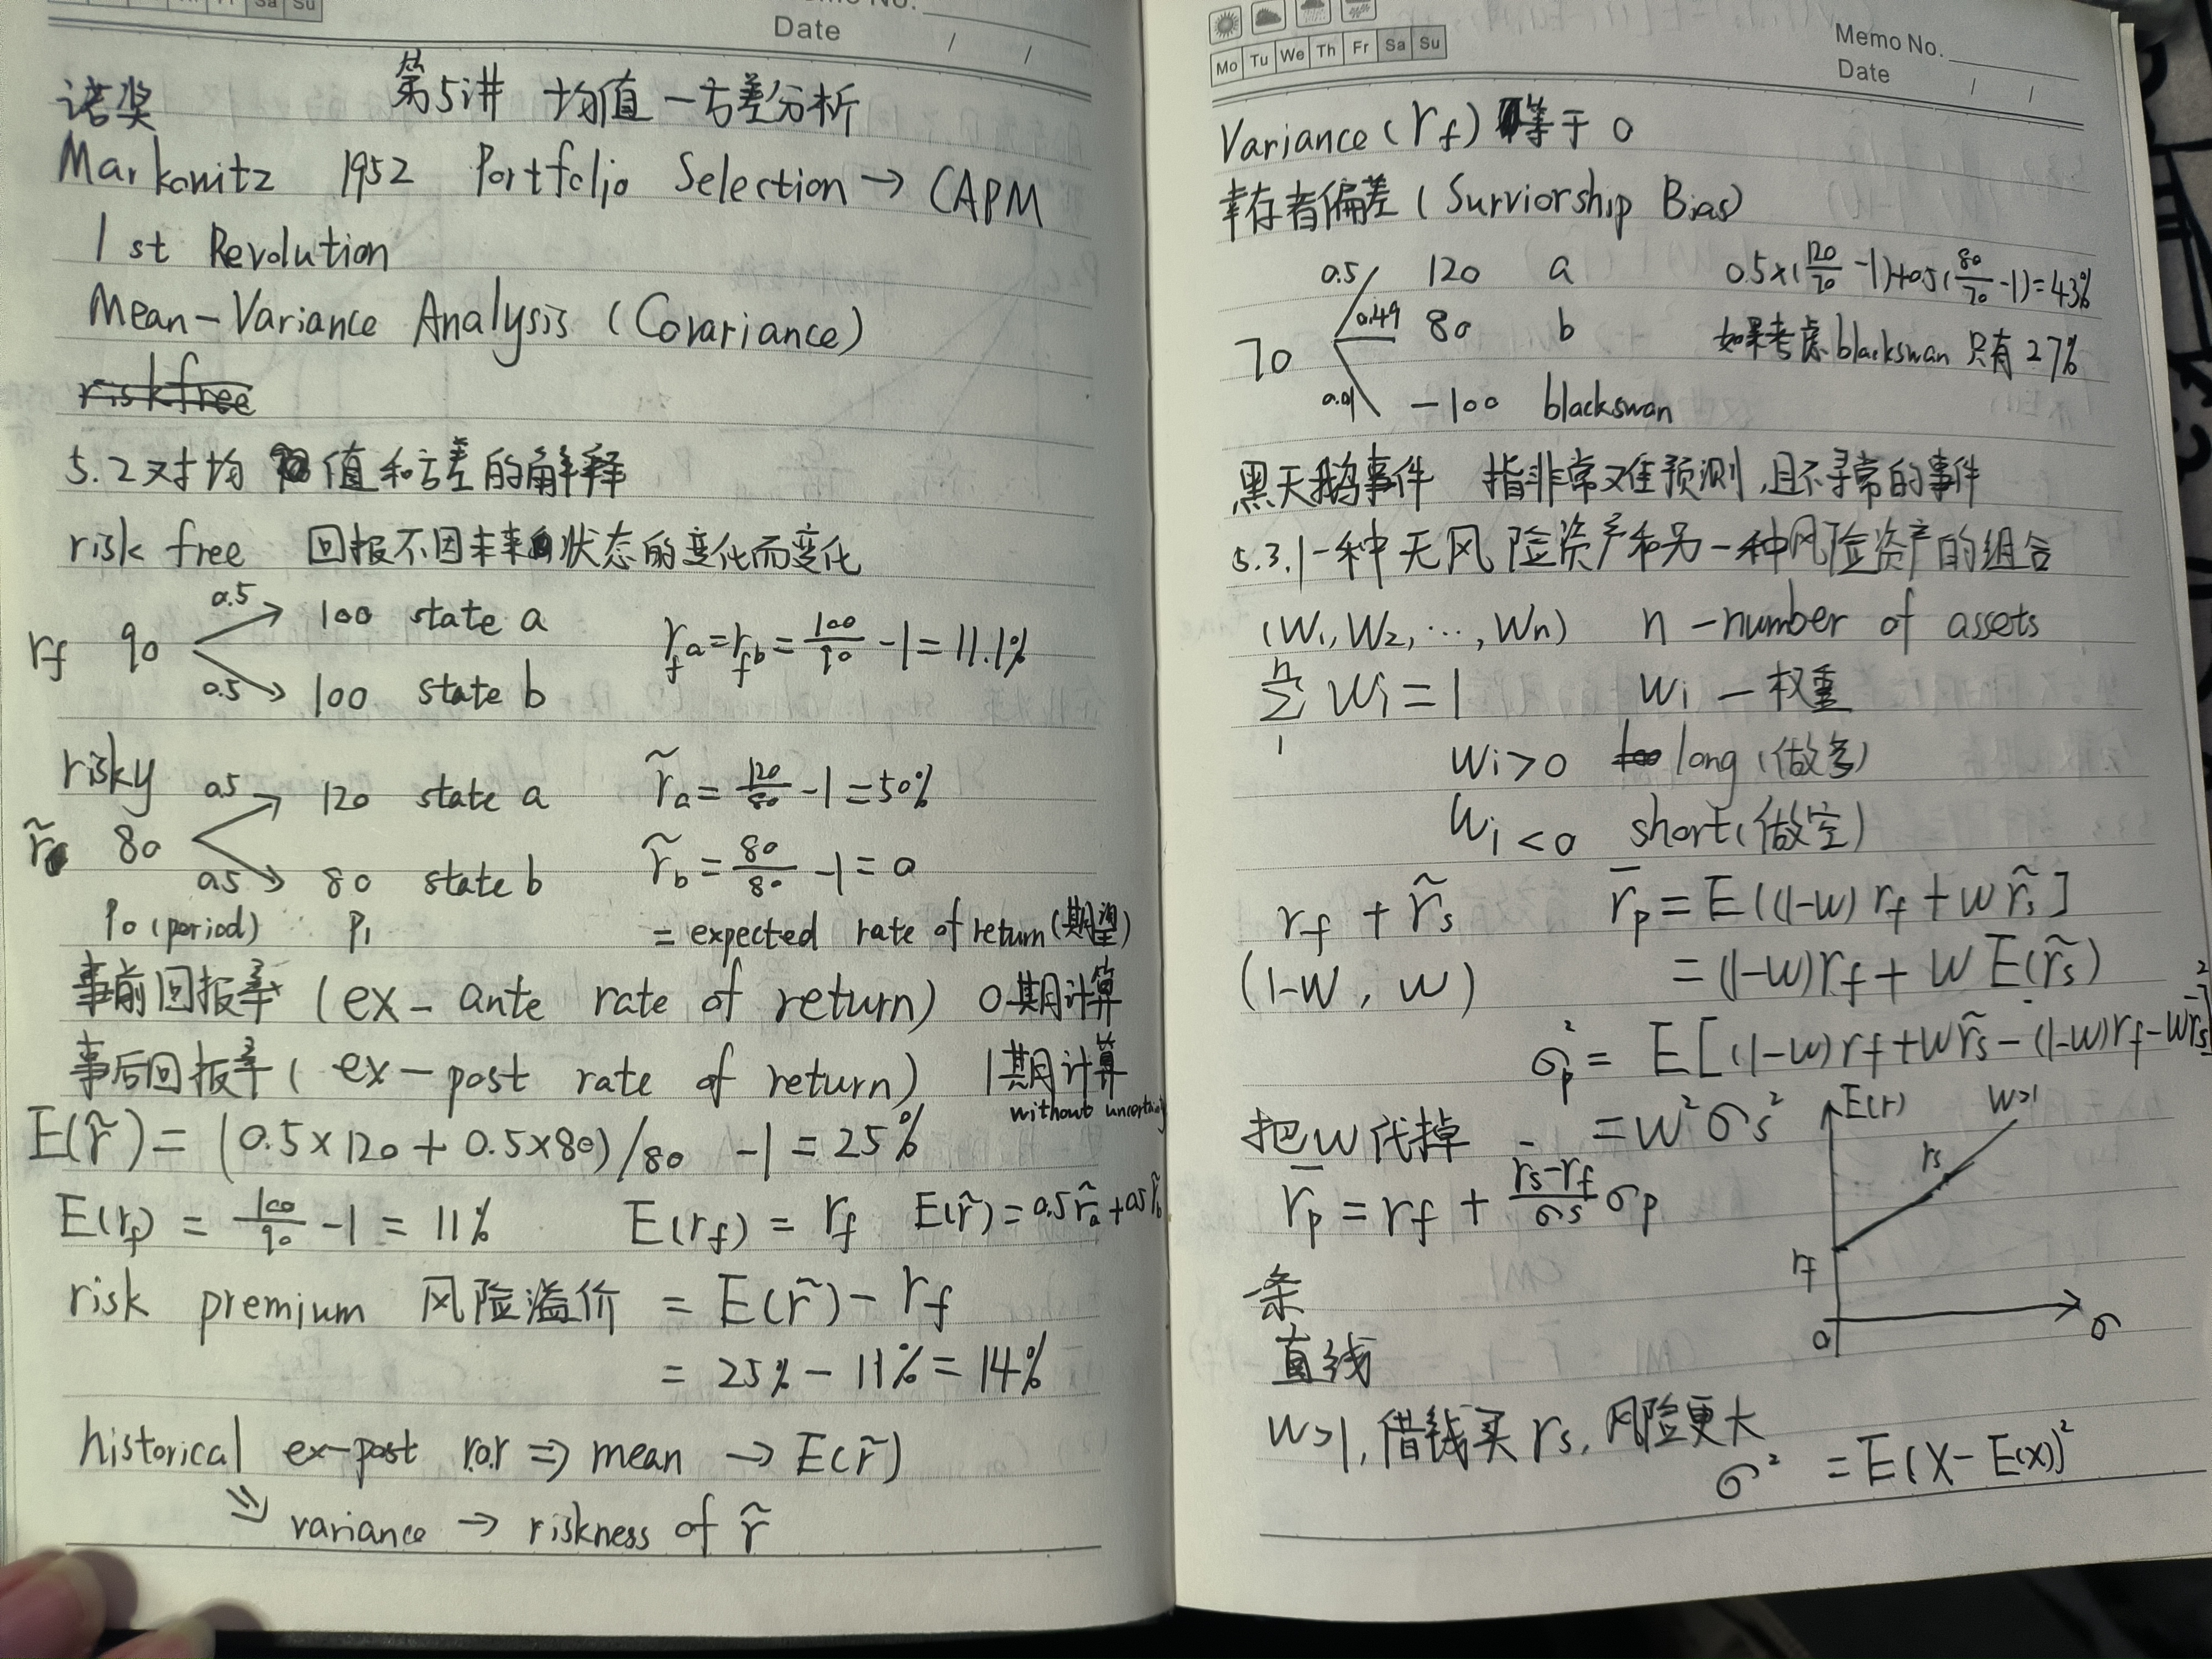 Sa Su
Memo No.
Date / /
诺奖 第5讲 均值-方差分析
Markowitz 1952 Portfolio Selection → CAPM
1st Revolution
Mean-Variance Analysis (Covariance)
riskfree
5.2 对均值和方差的解释
risk free 回报不因未来状态的变化而变化
0.5 100 state a
rf 90 rfa = rfb = 100/90 - 1 = 11.1%
0.5 100 state b
risky 0.5 120 state a r̃a = 120/80 - 1 = 50%
r̃ 80
0.5 80 state b r̃b = 80/80 - 1 = 0
P0 (period) P1 = expected rate of return (期望)
事前回报率 (ex-ante rate of return) 0期计算
事后回报率 (ex-post rate of return) 1期计算
without uncertainty
E(r̃) = (0.5×120 + 0.5×80)/80 - 1 = 25%
E(rf) = 100/90 - 1 = 11% E(rf) = rf E(r̃) = 0.5r̃a + 0.5r̃b
risk premium 风险溢价 = E(r̃) - rf
= 25% - 11% = 14%
historical ex-post r.o.r ⇒ mean → E(r̃)
⇒ variance → riskness of r̃
Mo Tu We Th Fr Sa Su
Memo No.
Date / /
Variance (rf) 等于 0
幸存者偏差 (Surviorship Bias)
0.5 120 a 0.5×(120/70 - 1)+0.5(80/70 - 1)=43%
70 0.49 80 b 如果考虑blackswan 只有27%
0.01 -100 blackswan
黑天鹅事件 指非常难预测,且不寻常的事件
5.3.1 一种无风险资产和另一种风险资产的组合
(W1, W2, ..., Wn) n - number of assets
n∑1 Wi = 1 Wi - 权重
Wi > 0 long (做多)
Wi < 0 short (做空)
rf + r̃s r̄p = E[(1-w) rf + w r̃s]
(1-w, w) = (1-w) rf + w E(r̃s)
σp² = E[(1-w) rf + w r̃s - (1-w) rf - w r̄s]²
把w代掉 = w²σs²
r̄p = rf + (r̄s - rf)/σs σp
E(r) w>1
rs
rf
0 σ
一条
直线
w>1, 借钱买 rs, 风险更大
σ² = E(X - E(X))²